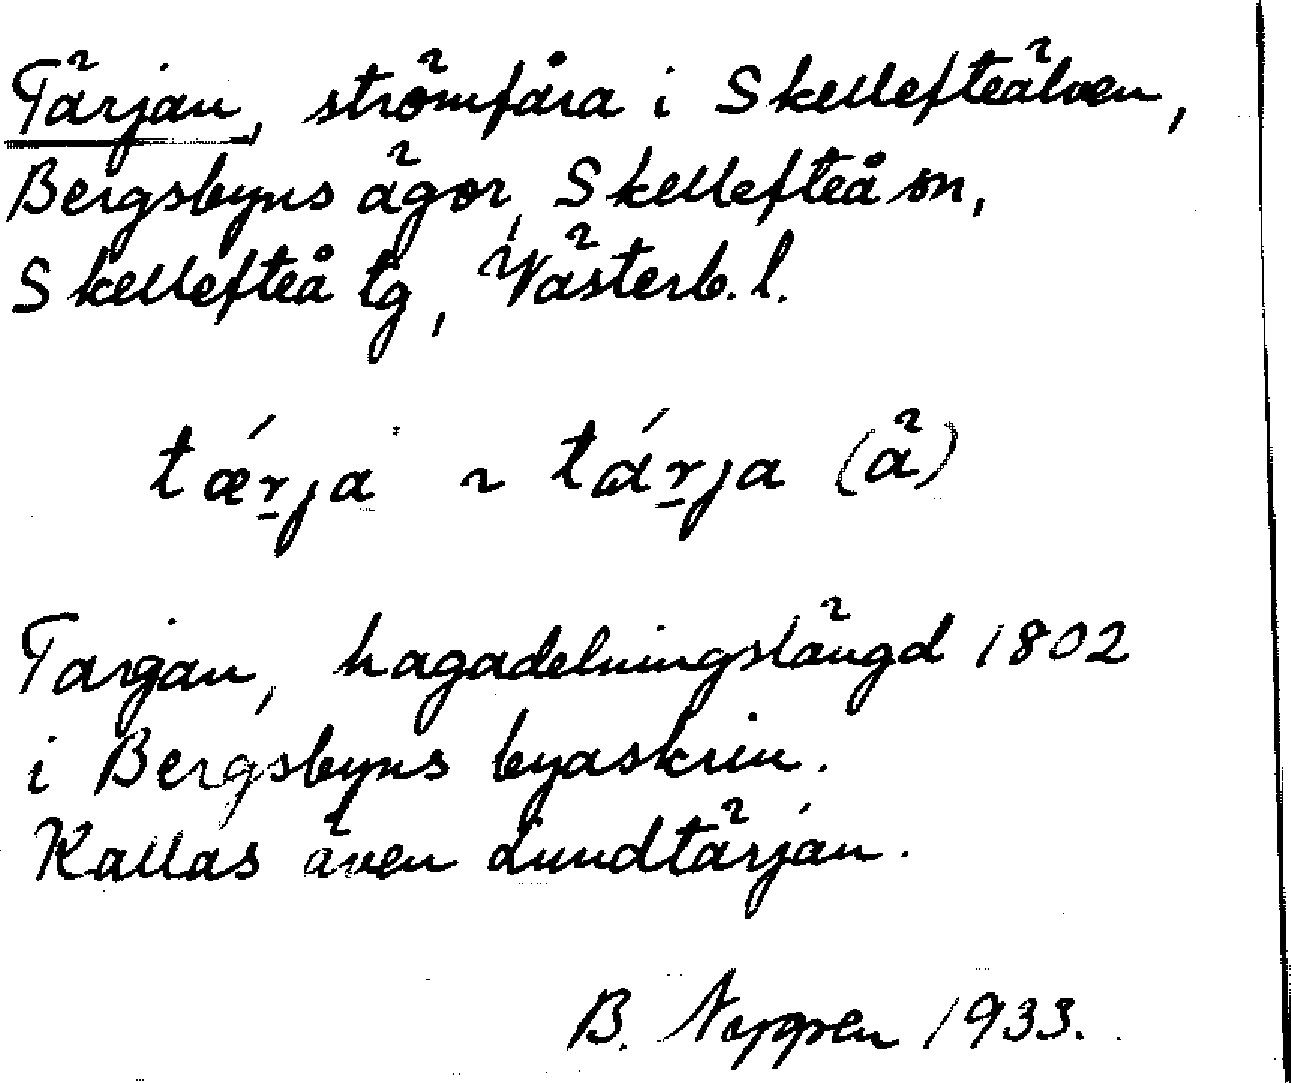 Tärjan, strömfåra i Skellefteälven,
Bergsbyns ägor, Skellefteå sn,
Skellefteå tg, Västerb. l.
tǽr̲ja ~ tár̲ja (ä)
Targan, hagadelningslängd 1802
i Bergsbyns byaskrin.
Kallas även Lundtärjan.
B. Nygren 1933.